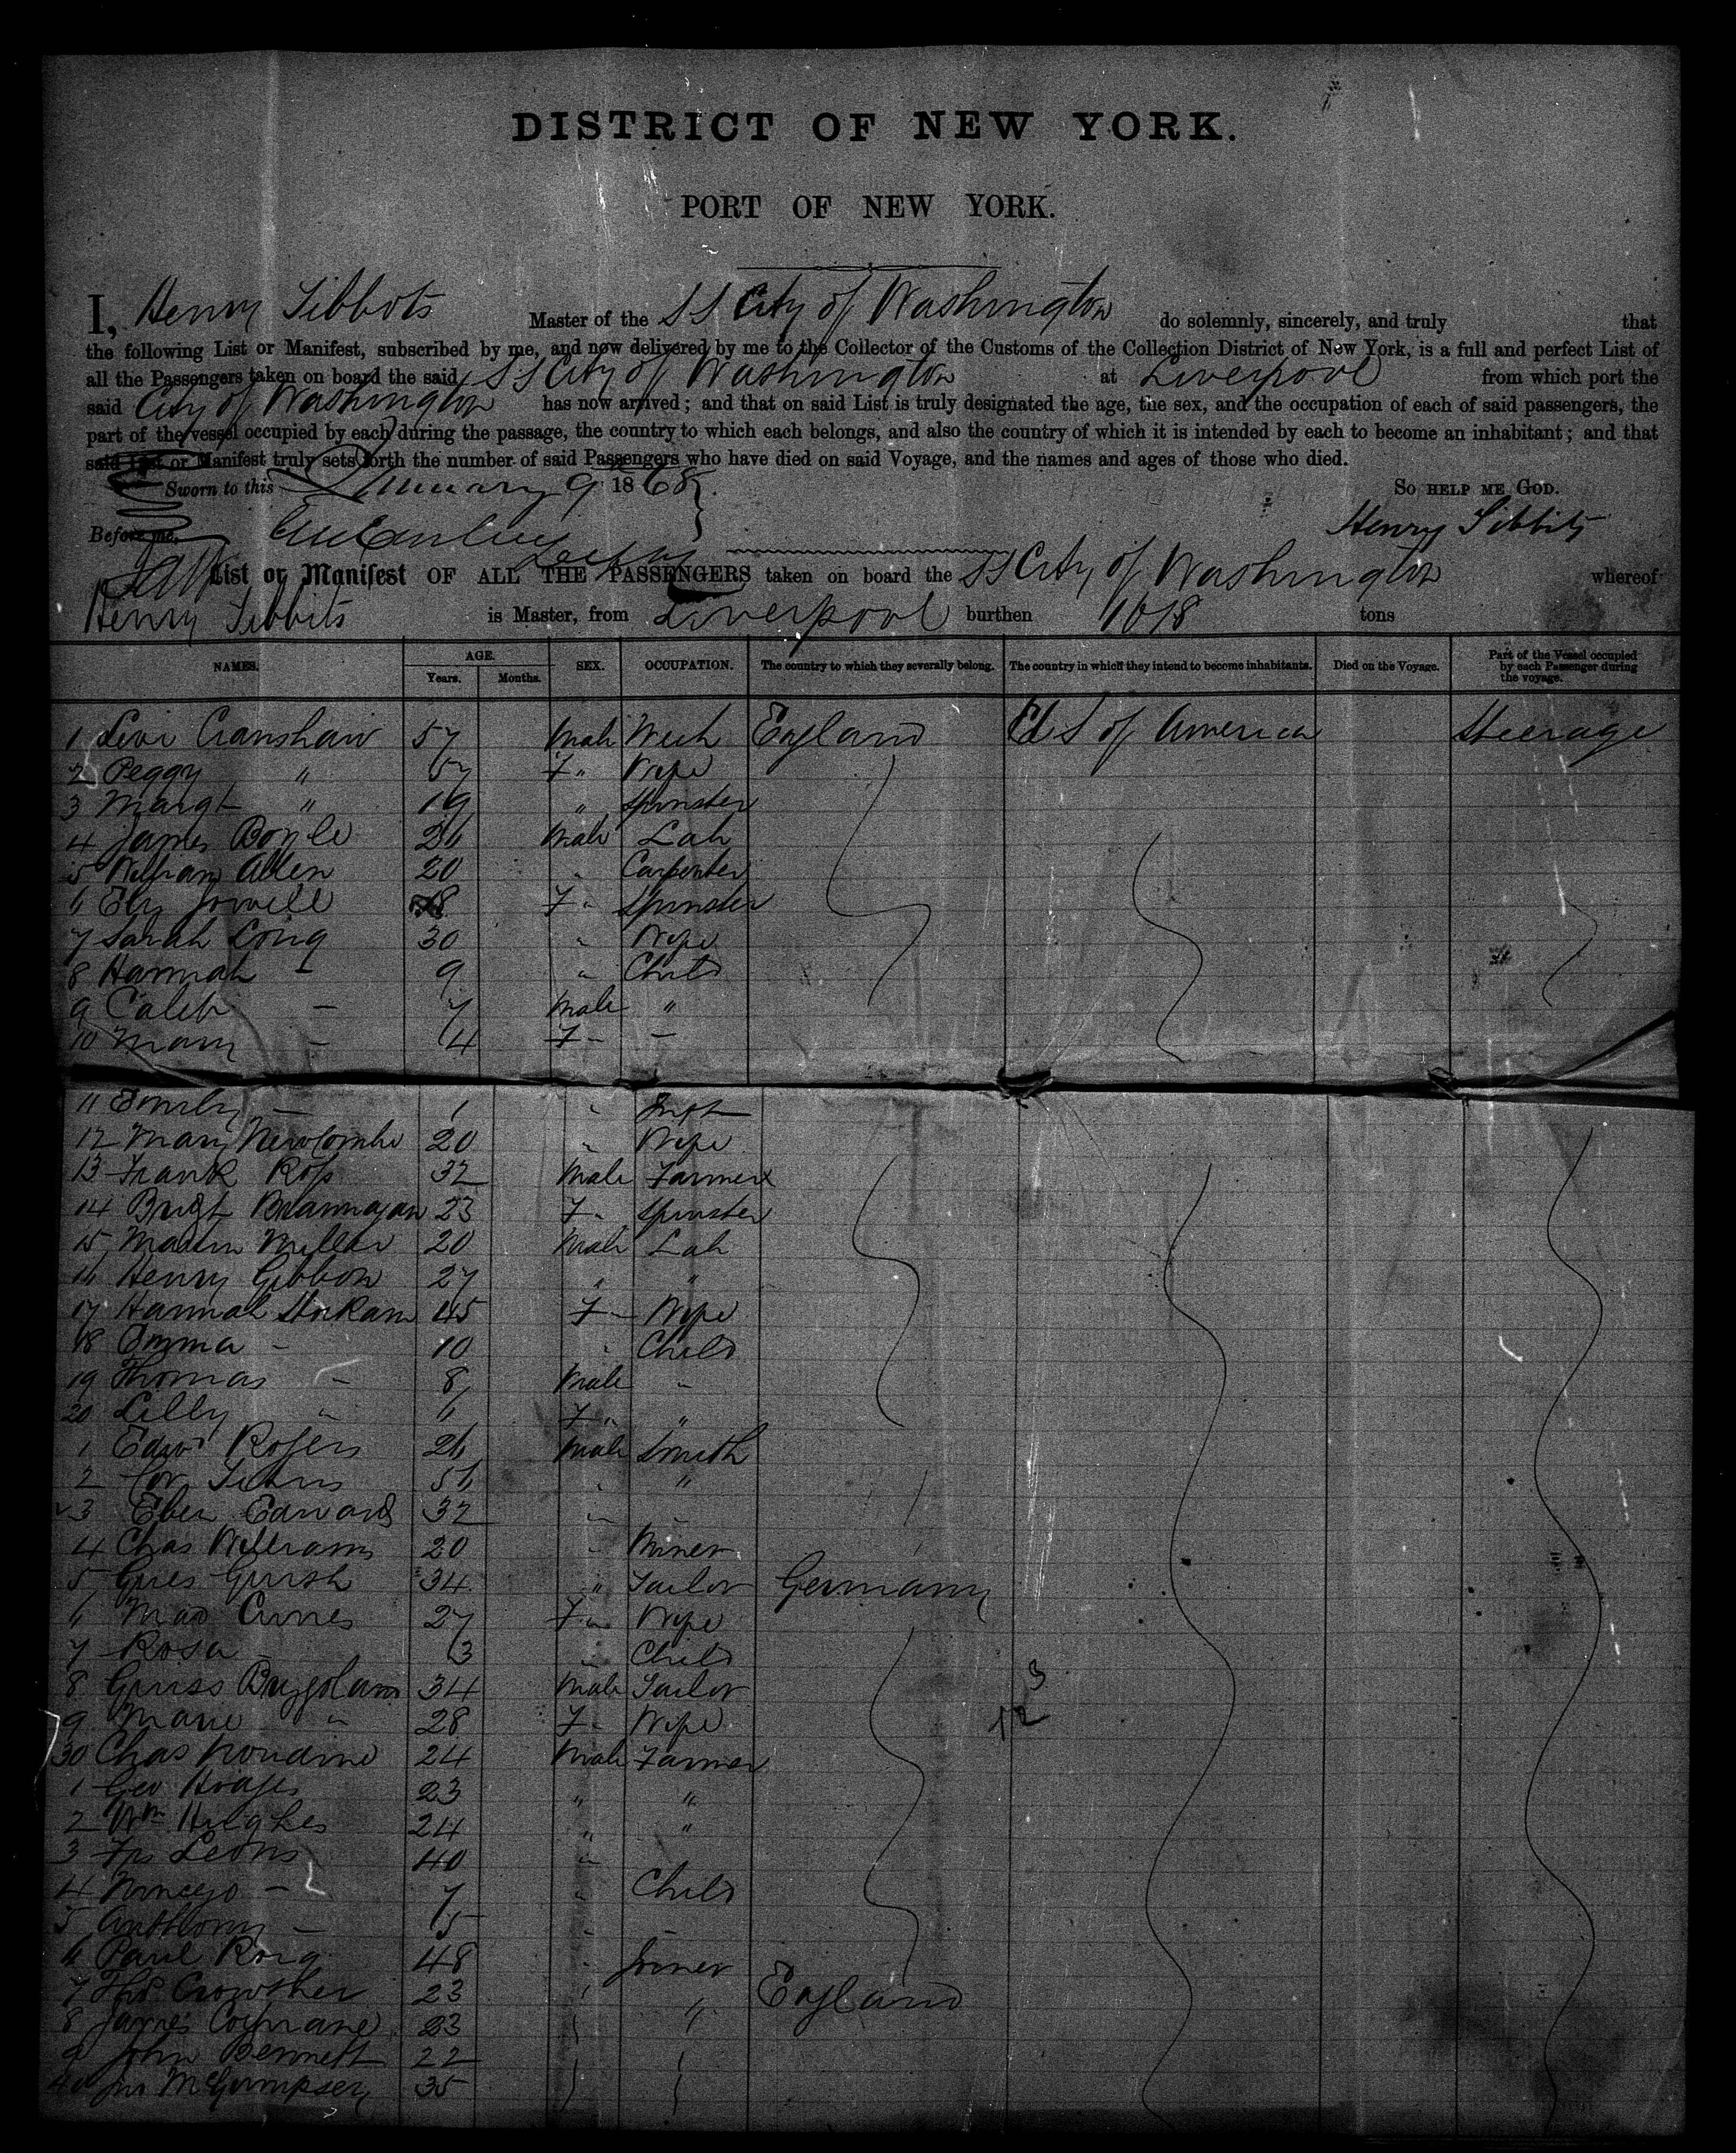 DISTRICT OF NEW YORK.
PORT OF NEW YORK.
I, Henry Tibbots Master of the SS City of Washington do solemnly, sincerely, and truly that
the following List or Manifest, subscribed by me, and now delivered by me to the Collector of the Customs of the Collection District of New York, is a full and perfect List of
all the Passengers taken on board the said SS City of Washington at Liverpool from which port the
said City of Washington has now arrived; and that on said List is truly designated the age, the sex, and the occupation of each of said passengers, the
part of the vessel occupied by each during the passage, the country to which each belongs, and also the country of which it is intended by each to become an inhabitant; and that
said List or Manifest truly sets forth the number of said Passengers who have died on said Voyage, and the names and ages of those who died.
Sworn to this January 9 1868 SO HELP ME GOD.
Before me, Henry Tibbits
List or Manifest OF ALL THE PASSENGERS taken on board the SS City of Washington whereof
Henry Tibbits is Master, from Liverpool burthen tons
NAMES. AGE. Years. Months. SEX. OCCUPATION. The country to which they severally belong. The country in which they intend to become inhabitants. Died on the Voyage. Part of the Vessel occupied by each Passenger during the voyage.
1 Levi Cranshaw 57 Male England U S of America Steerage
2 Peggy " 57 F " Wife
3 Margt " 19 " Spinster
4 James Boyle 26 Male Lab
5 William Allen 20 " Carpenter
6 Eliz Jowell 18 F " Spinster
7 Sarah Long 30 " Wife
8 Hannah - 9 " Child
9 Caleb - 7 Male "
10 Mary - 4 F - -
11 Emily - 1 " Inft
12 Mary Newcombe 20 " Wife
13 Frank Ross 32 Male Farmer
14 Bridt Brannagan 23 F " Spinster
15 Martin Millar 20 Male Lab
16 Henry Gibbon 27 " "
17 Hannah 45 F - Wife
18 Emma - 10 " Child
19 Thomas - 8 Male "
20 Lilly " 6 F " "
1 Edwd Rogers 26 Male Smith
2 56 " "
3 Eben Edwards 32 " "
4 Chas Williams 20 " Miner
5 34 " Tailor Germany
6 27 F " Wife
7 Rosa 3 " Child
8 34 Male Tailor
9 Marie " 28 F " Wife
30 Chas 24 Male Farmer
1 Geo Hodges 23 " "
2 Wm Hughes 24 " "
3 Frs Leons 40 "
4 - 7 " Child
5 Anthony - 5 "
6 Paul Roig 48 " Joiner
7 Thos Crowther 23 " " England
8 James Cochrane 23
9 John Bennett 22
40 Jno McGimpsey 35